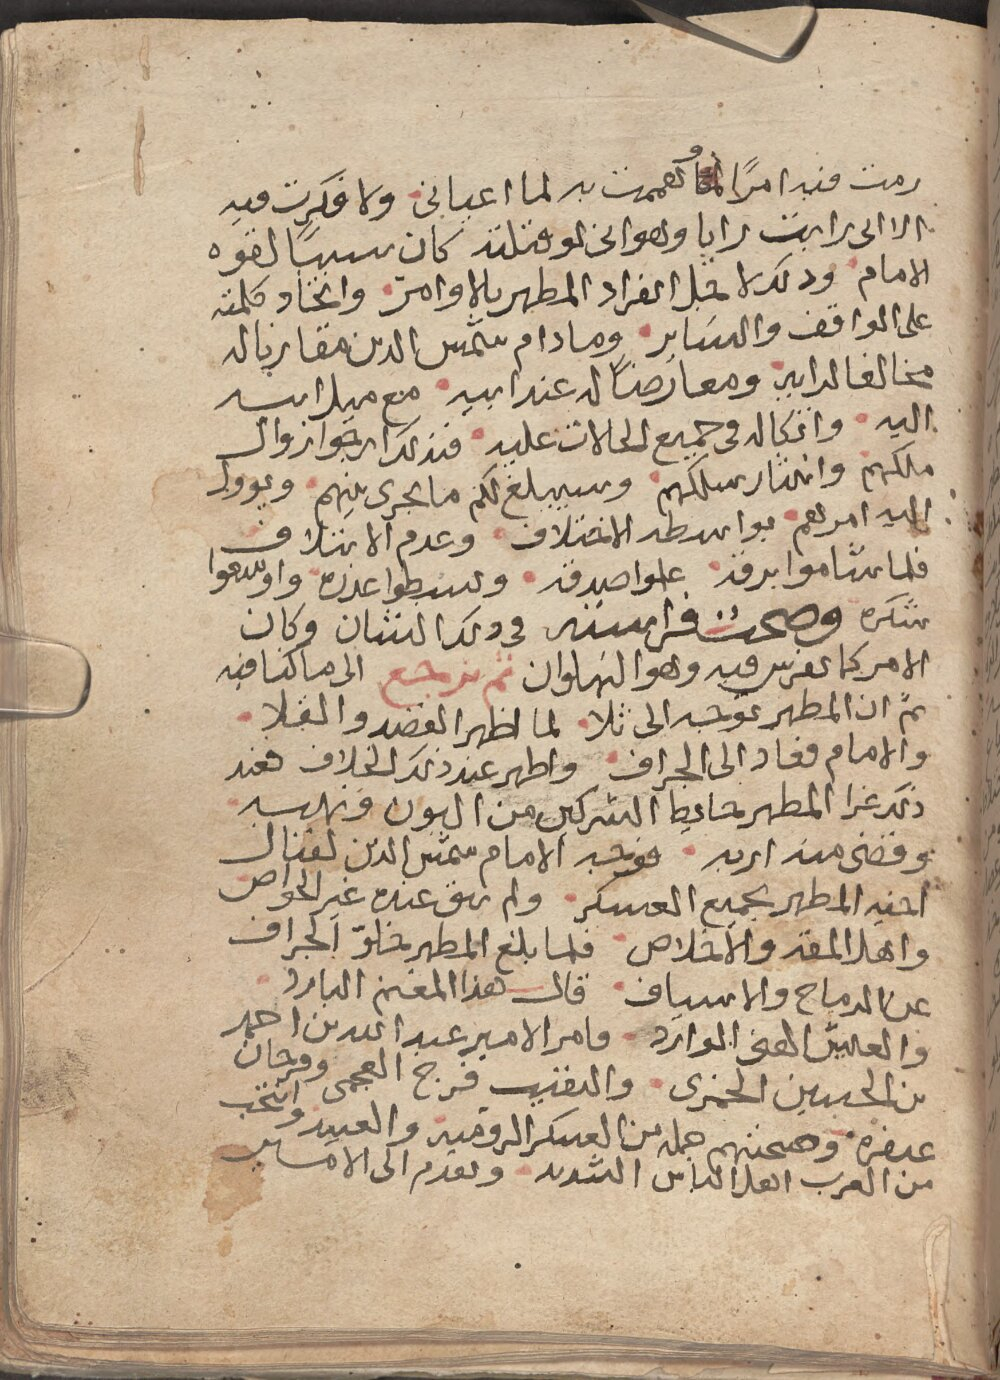 رمت فيه امرًا وهممت به لما اعياني ولا فكرت فيه
الا اني رايت رايا وهو اني لو قتلته كان سببًا لقوه
الامام ودلك لاجل انفراد المطهر بالاوامر واتحاد كلمته
على الواقف والساير وما دام شمس الدين مقاربا له
مخالفا لرايه ومعارضًا له عند ابيه مع ميل ابيه
اليه واتكاله في جميع الحالات عليه فذلك ارجوا زوال
ملكهم وانتثار سلكهم وسيبلغ لكم ما يجري بينهم ويوول
اليه امرهم بواسطه الاختلاف وعدم الائتلاف
فلما شاموا برقه علموا صدقه وبسطوا عذره واوسعوا
شكره وصحت فراسته في دلك الشان وكان
الامر كما تفرس فيه وهو النهلوان ثم نرجع الى ما كنا فيه
ثم ان المطهر توجه الى ثلا لما اظهر القصد والقلا
والامام فعاد الى الجراف واظهر عند ذلك الخلاف فعند
ذلك غزا المطهر حافظ الشركين من البون ونهبه
وقضى منه اربه فوجه الامام شمس الدين لقتال
اخيه المطهر بجميع العسكر ولم يبق عنده غير الخواص
واهل المقه والاخلاص فلما بلغ المطهر خلو الجراف
عن الرماح والاسياف قال هذا المغنم البارد
والعيش الهني الوارد فامر الامير عبد الله بن احمد
بن الحسين الحمزي والنقيب فرج العجمي ومرجان
عيفره وصحبتهم جمله من العسكر الروميه والعبيد وانتخب
من العرب اهل الباس الشديد وتقدم الى الامير